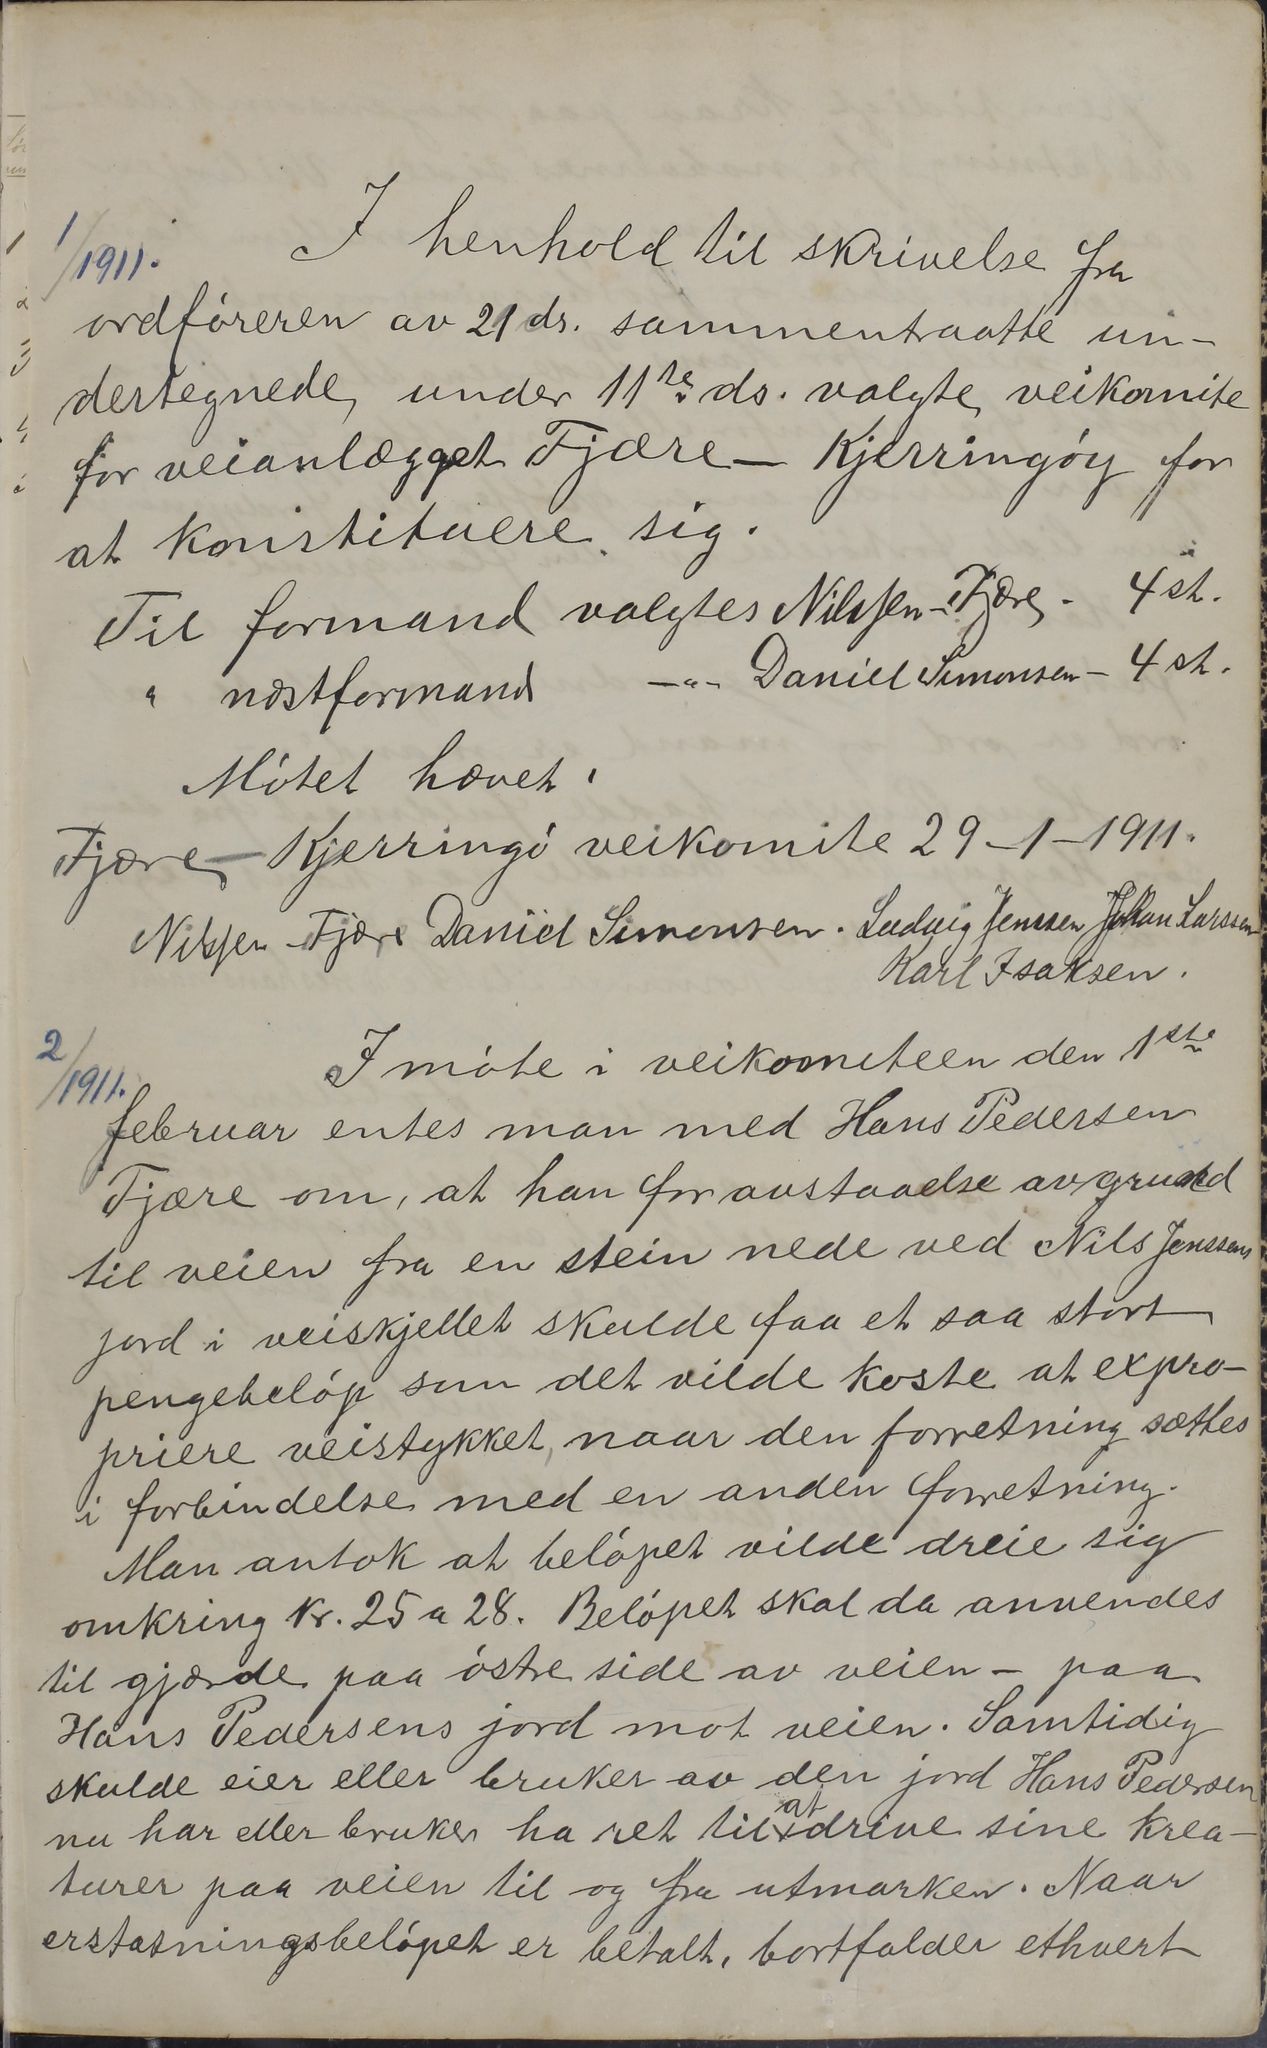 1/1911.
I henhold til skrivelse fra
ordföreren av 21 ds. sammentraatte un-
dertegnede, under 11te ds. valgte, veikomite
for veianlægget Fjære - Kjerringöy for
at konstituere sig.
Til formand valgtes Nilssen-Fjære - 4 st.
" næstformand -"- Daniel Simonsen - 4 st.
Mötet hævet.
Fjære - Kjerringö veikomite 29-1-1911.
Nilssen-Fjære Daniel Simonsen. Ludvig Jenssen Johan Larssen
Karl Isaksen.
2/1911.
I möte i veikomiteen den 1ste
februar entes man med Hans Pedersen
Fjære om, at han for avstaaelse av grund
til veien fra en stein nede ved Nils Jenssens
jord i veiskjellet skulde faa et saa stort
pengebelöp som det vilde koste at expro-
priere veistykket, naar den forretning sættes
i forbindelse med en anden forretning.
Man antok at belöpet vilde dreie sig
omkring kr. 25 a 28. Belöpet skal da anvendes
til gjærde paa östre side av veien - paa
Hans Pedersens jord mot veien. Samtidig
skulde eier eller bruker av den jord Hans Pedersen
nu har eller bruker ha ret til at drive sine krea-
turer paa veien til og fra utmarken. Naar
erstatningsbelöpet er betalt, bortfalder ethvert